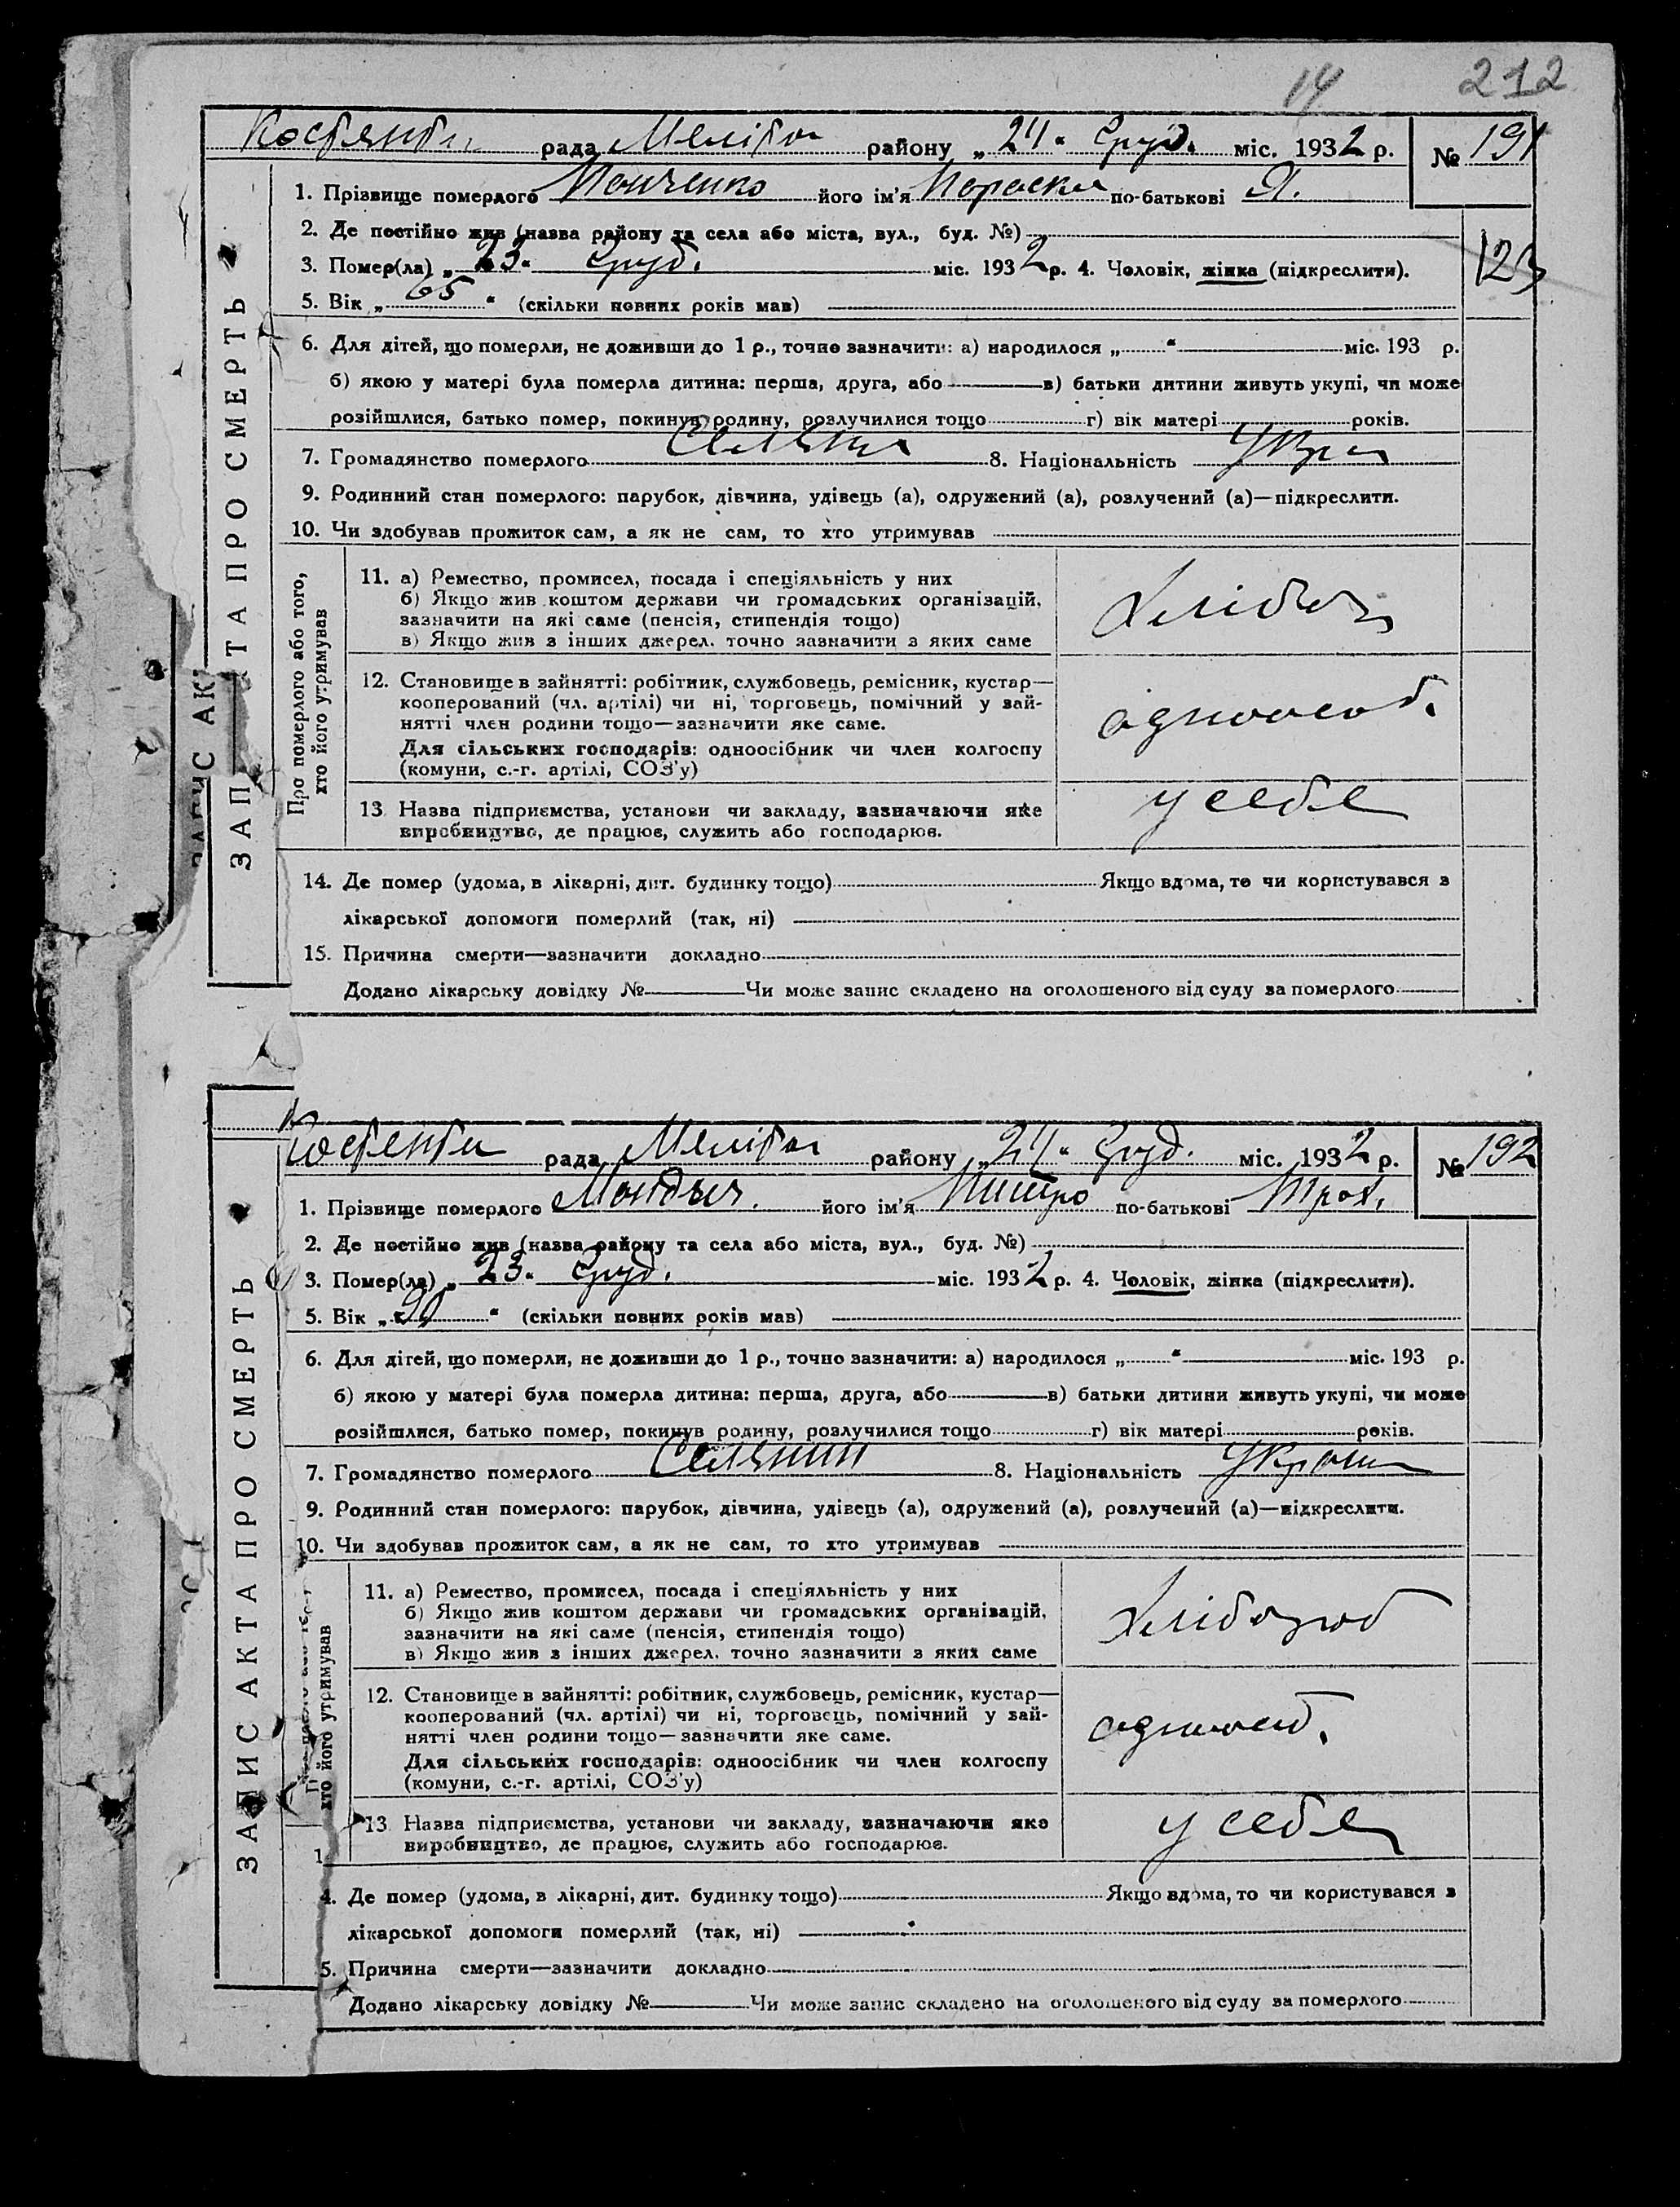 14 212
рада Меліто району „24" Груд. міс. 1932 р. № 191
1. Прізвище померлого Панченко його ім'я Параска по-батькові Я.
2. Де постійно жив (назва району та села або міста, вул., буд. №)
3. Помер(ла) „23" Груд. міс. 1932 р. 4. Чоловік, жінка (підкреслити). 123
5. Вік „65" (скільки повних років мав)
6. Для дітей, що померли, не доживши до 1 р., точно зазначити: а) народилося „ " міс. 193 р.
б) якою у матері була померла дитина: перша, друга, або в) батьки дитини живуть укупі, чи може
розійшлися, батько помер, покинув родину, розлучилися тощо г) вік матері років.
7. Громадянство померлого Селянка 8. Національність Укра
9. Родинний стан померлого: парубок, дівчина, удівець (а), одружений (а), розлучений (а)—підкреслити.
10. Чи здобував прожиток сам, а як не сам, то хто утримував
ЗАП ТА ПРО СМЕРТЬ
Про померлого або того,
хто його утримував
11. а) Ремество, промисел, посада і спеціяльність у них
б) Якщо жив коштом держави чи громадських організацій,
зазначити на які саме (пенсія, стипендія тощо)
в) Якщо жив з інших джерел, точно зазначити з яких саме
Хлібор
12. Становище в зайнятті: робітник, службовець, ремісник, кустар—
кооперований (чл. артілі) чи ні, торговець, помічний у зай-
нятті член родини тощо—зазначити яке саме.
Для сільських господарів: одноосібник чи член колгоспу
(комуни, с.-г. артілі, СОЗ'у)
одноособ.
13 Назва підприємства, установи чи закладу, зазначаючи яке
виробництво, де працює, служить або господарює.
у себе
14. Де помер (удома, в лікарні, дит. будинку тощо) Якщо вдома, то чи користувався з
лікарської допомоги померлий (так, ні)
15. Причина смерти—зазначити докладно
Додано лікарську довідку № Чи може запис складено на оголошеного від суду за померлого
рада Меліто району „24" Груд. міс. 1932 р. № 192
1. Прізвище померлого його ім'я по-батькові Троф.
2. Де постійно жив (назва району та села або міста, вул., буд. №)
3. Помер(ла) „23" Груд. міс. 1932 р. 4. Чоловік, жінка (підкреслити).
5. Вік „90" (скільки повних років мав)
6. Для дітей, що померли, не доживши до 1 р., точно зазначити: а) народилося „ " міс. 193 р.
б) якою у матері була померла дитина: перша, друга, або в) батьки дитини живуть укупі, чи може
розійшлися, батько помер, покинув родину, розлучилися тощо г) вік матері років.
7. Громадянство померлого Селянин 8. Національність Украин
9. Родинний стан померлого: парубок, дівчина, удівець (а), одружений (а), розлучений (а)—підкреслити.
10. Чи здобував прожиток сам, а як не сам, то хто утримував
ЗАПИС АКТА ПРО СМЕРТЬ
хто його утримував
11. а) Ремество, промисел, посада і спеціяльність у них
б) Якщо жив коштом держави чи громадських організацій,
зазначити на які саме (пенсія, стипендія тощо)
в) Якщо жив з інших джерел, точно зазначити з яких саме
Хлібороб
12. Становище в зайнятті: робітник, службовець, ремісник, кустар—
кооперований (чл. артілі) чи ні, торговець, помічний у зай-
нятті член родини тощо—зазначити яке саме.
Для сільських господарів: одноосібник чи член колгоспу
(комуни, с.-г. артілі, СОЗ'у)
одноособ.
13 Назва підприємства, установи чи закладу, зазначаючи яке
виробництво, де працює, служить або господарює.
у себе
4. Де помер (удома, в лікарні, дит. будинку тощо) Якщо вдома, то чи користувався з
лікарської допомоги померлий (так, ні)
5. Причина смерти—зазначити докладно
Додано лікарську довідку № Чи може запис складено на оголошеного від суду за померлого